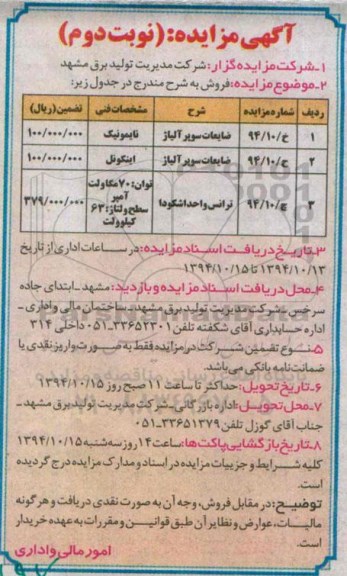 آگهی مزایده: (نوبت دوم)
۱ـ شرکت مزایده گزار: شرکت مدیریت تولید برق مشهد
۲ـ موضوع مزایده: فروش به شرح مندرج در جدول زیر:
ردیف شماره مزایده شرح مشخصات فنی تضمین (ریال)
۱ خ/۹۴/۱۰ ضایعات سوپر آلیاژ نایمونیک ۱۰۰/۰۰۰/۰۰۰
۲ ح/۹۴/۱۰ ضایعات سوپر آلیاژ اینکونل ۱۰۰/۰۰۰/۰۰۰
۳ چ/۹۴/۱۰ ترانس واحد اشکودا توان: ۷۰ مگاولت آمپر سطح ولتاژ: ۶۳ کیلوولت ۳۷۹/۰۰۰/۰۰۰
۳ـ تاریخ دریافت اسناد مزایده: در ساعات اداری از تاریخ
۱۳۹۴/۱۰/۱۳ تا ۱۳۹۴/۱۰/۱۵
۴ـ محل دریافت اسناد مزایده و بازدید: مشهد ـ ابتدای جاده
سرخس ـ شرکت مدیریت تولید برق مشهد ـ ساختمان مالی و اداری ـ
اداره حسابداری آقای شکفته تلفن ۳۳۶۵۲۳۰۱-۰۵۱ داخلی ۳۱۴
۵ـ نوع تضمین شرکت در مزایده فقط به صورت واریز نقدی یا
ضمانت نامه بانکی می باشد.
۶ـ تاریخ تحویل: حداکثر تا ساعت ۱۱ صبح روز ۱۳۹۴/۱۰/۱۵
۷ـ محل تحویل: اداره بازرگانی ـ شرکت مدیریت تولید برق مشهد ـ
جناب آقای گوزل تلفن ۳۳۶۵۱۳۷۹-۰۵۱
۸ـ تاریخ بازگشایی پاکت ها: ساعت ۱۴ روز سه شنبه ۱۳۹۴/۱۰/۱۵
کلیه شرایط و جزییات مزایده در اسناد و مدارک مزایده درج گردیده
است.
توضیح: در مقابل فروش، وجه آن به صورت نقدی دریافت و هر گونه
مالیات، عوارض و نظایر آن طبق قوانین و مقررات به عهده خریدار
است.
امور مالی و اداری